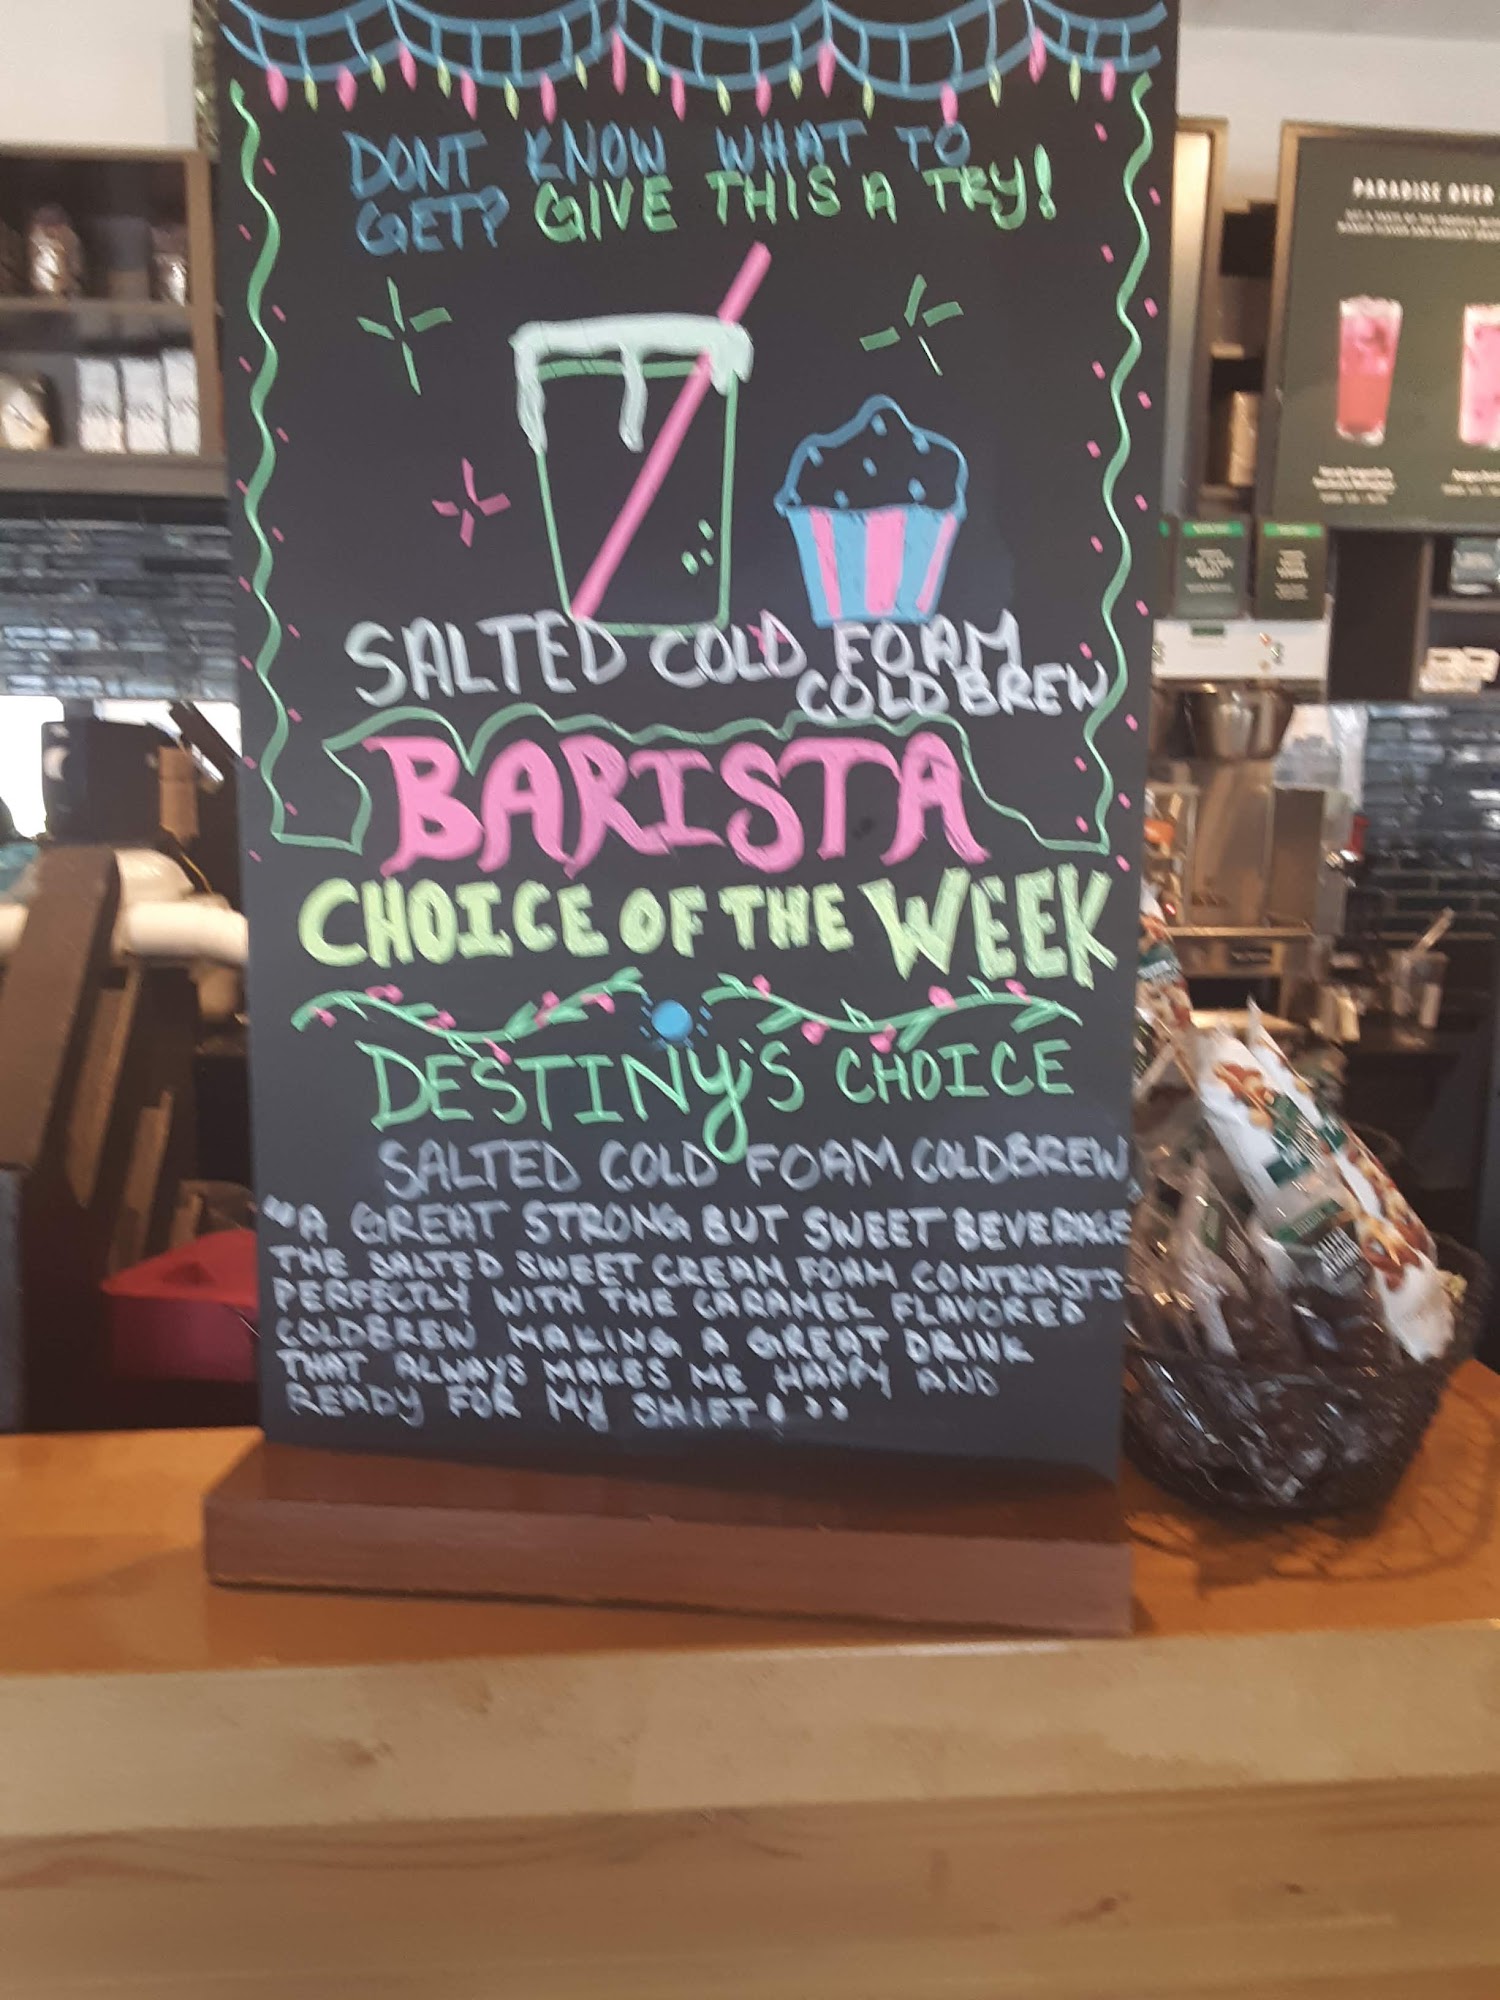 DONT KNOW WHAT TO
GET? GIVE THIS A TRY!
SALTED COLD FOAM
COLDBREW
BARISTA
CHOICE OF THE WEEK
DESTINY'S CHOICE
SALTED COLD FOAM COLDBREW
"A GREAT STRONG BUT SWEET BEVERAGE
THE SALTED SWEET CREAM FOAM CONTRASTS
PERFECTLY WITH THE CARAMEL FLAVORED
COLDBREW MAKING A GREAT DRINK
THAT ALWAYS MAKES ME HAPPY AND
READY FOR MY SHIFT! "
PARADISE OVER